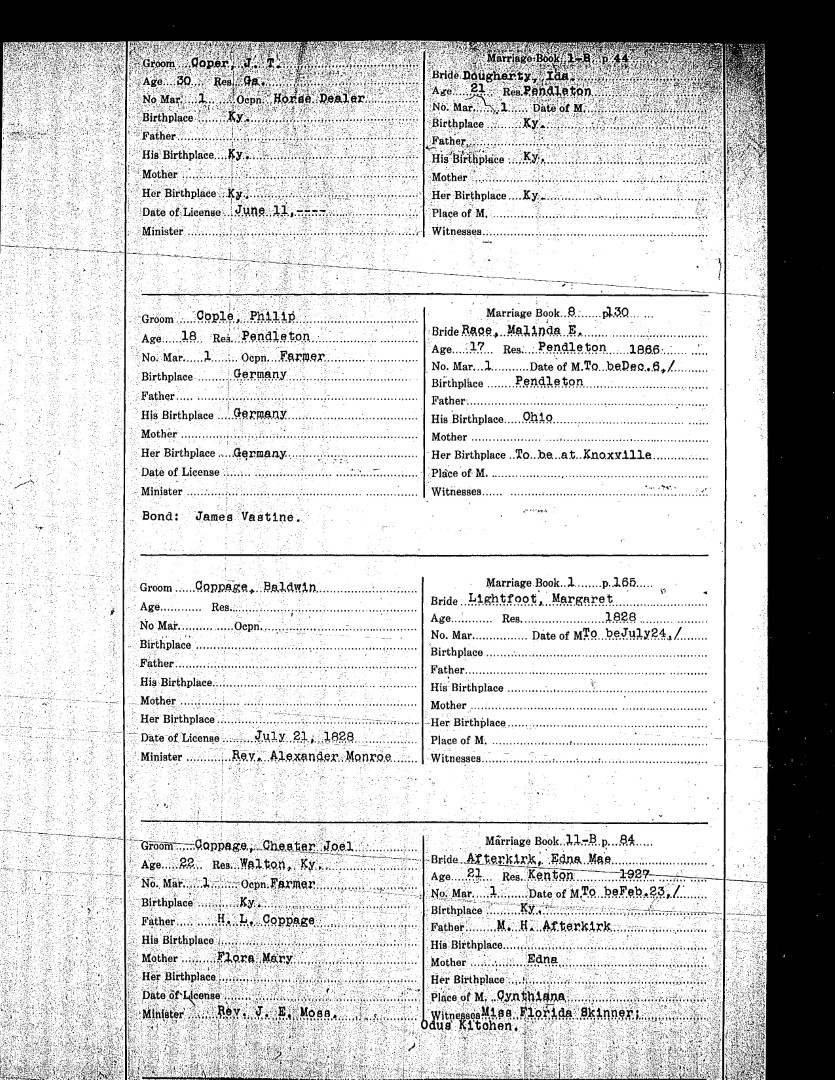 Groom Coper, J. T.
Age 30 Res. Ga.
No Mar. 1 Ocpn. Horse Dealer
Birthplace Ky.
Father
His Birthplace Ky.
Mother
Her Birthplace Ky.
Date of License June 11,----
Minister
Marriage Book 1-B p 44
Bride Dougherty, Ida.
Age 21 Res. Pendleton
No. Mar. 1 Date of M.
Birthplace Ky.
Father
His Birthplace Ky.
Mother
Her Birthplace Ky.
Place of M.
Witnesses
Groom Cople, Philip
Age 18 Res. Pendleton
No. Mar. 1 Ocpn. Farmer
Birthplace Germany
Father
His Birthplace Germany
Mother
Her Birthplace Germany
Date of License
Minister
Bond: James Vastine.
Marriage Book 8 p130
Bride Race, Malinda E.
Age 17 Res. Pendleton 1866
No. Mar. 1 Date of M. To beDec.6,/
Birthplace Pendleton
Father
His Birthplace Ohio
Mother
Her Birthplace To be at Knoxville
Place of M.
Witnesses
Groom Coppage, Baldwin
Age Res.
No Mar. Ocpn.
Birthplace
Father
His Birthplace
Mother
Her Birthplace
Date of License July 21, 1828
Minister Rev. Alexander Monroe
Marriage Book 1 p. 165
Bride Lightfoot, Margaret
Age Res. 1828
No. Mar. Date of M To beJuly24,/
Birthplace
Father
His Birthplace
Mother
Her Birthplace
Place of M.
Witnesses
Groom Coppage, Chester Joel
Age 22 Res. Walton, Ky.
No. Mar. 1 Ocpn. Farmer
Birthplace Ky.
Father H. L. Coppage
His Birthplace
Mother Flora Mary
Her Birthplace
Date of License
Minister Rev. J. E. Moss.
Marriage Book 11-B p. 84
Bride Afterkirk, Edna Mae
Age 21 Res. Kenton 1927
No. Mar. 1 Date of M. To beFeb.23,/
Birthplace Ky.
Father M. H. Afterkirk
His Birthplace
Mother Edna
Her Birthplace
Place of M. Cynthiana
Witnesses Miss Florida Skinner;
Odus Kitchen.